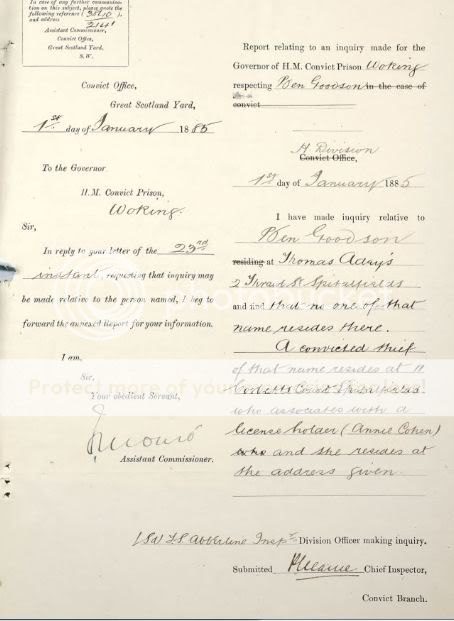 In case of any further communica-
tion on this subject, please quote the
following reference (
and address
Assistant Commissioner,
Convict Office,
Great Scotland Yard,
S.W.
Convict Office,
Great Scotland Yard,
1st day of January 1885
To the Governor
H.M. Convict Prison,
Woking.
Sir,
In reply to your letter of the 23rd
instant requesting that inquiry may
be made relative to the person named, I beg to
forward the annexed Report for your information.
I am,
Sir,
Your obedient Servant,
Assistant Commissioner.
Report relating to an inquiry made for the
Governor of H.M. Convict Prison Woking
respecting Ben Goodson in the case of
convict
H Division
Convict Office,
1st day of January 1885
I have made inquiry relative to
Ben Goodson
residing at Thomas Adry's
2 Thrawl St Spitalfields
and find that no one of that
name resides there.
A convicted thief
of that name resides at 11
Corbetts Court Spitalfields
who associates with a
license holder (Annie Cohen)
who and she resides at
the address given
Protect more of your
(Sd) F.G. Abberline Inspr Division Officer making inquiry.
Submitted Chief Inspector,
Convict Branch.